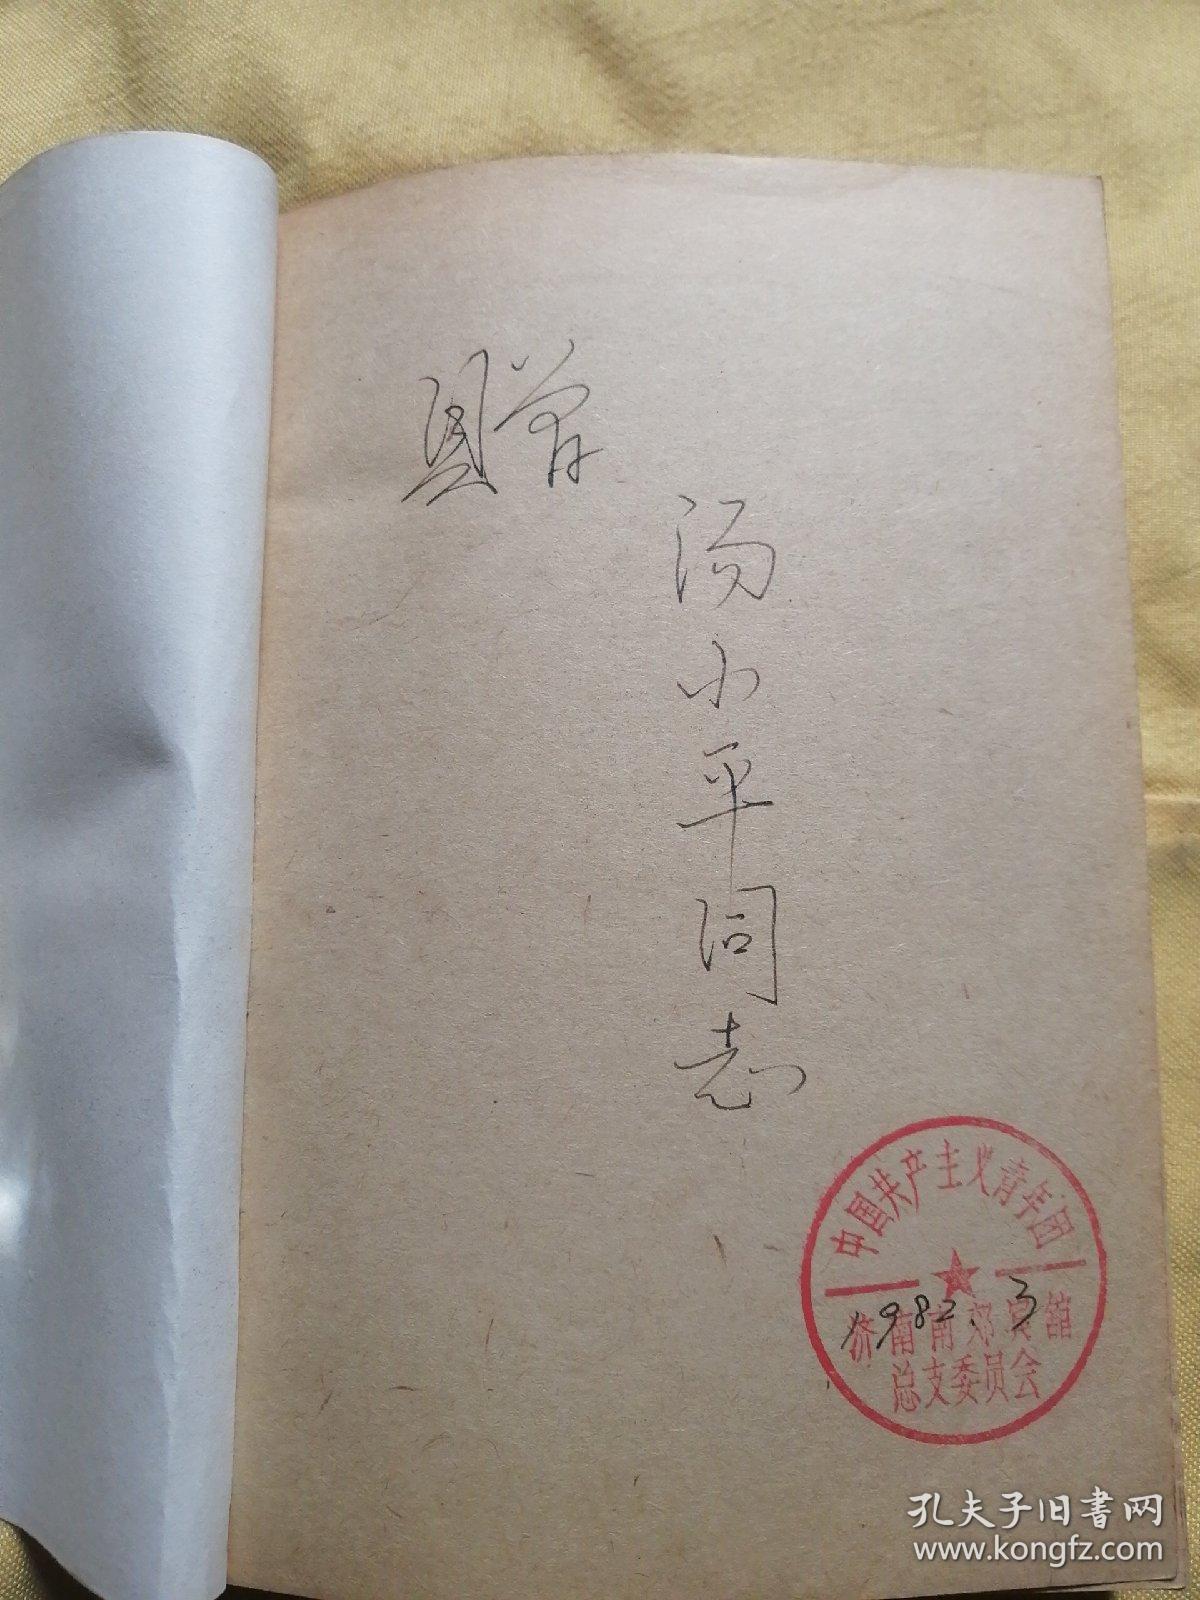 赠
汤小平同志
中国共产主义青年团
济南南郊宾馆
总支委员会
1982.3
孔夫子旧书网
www.kongfz.com